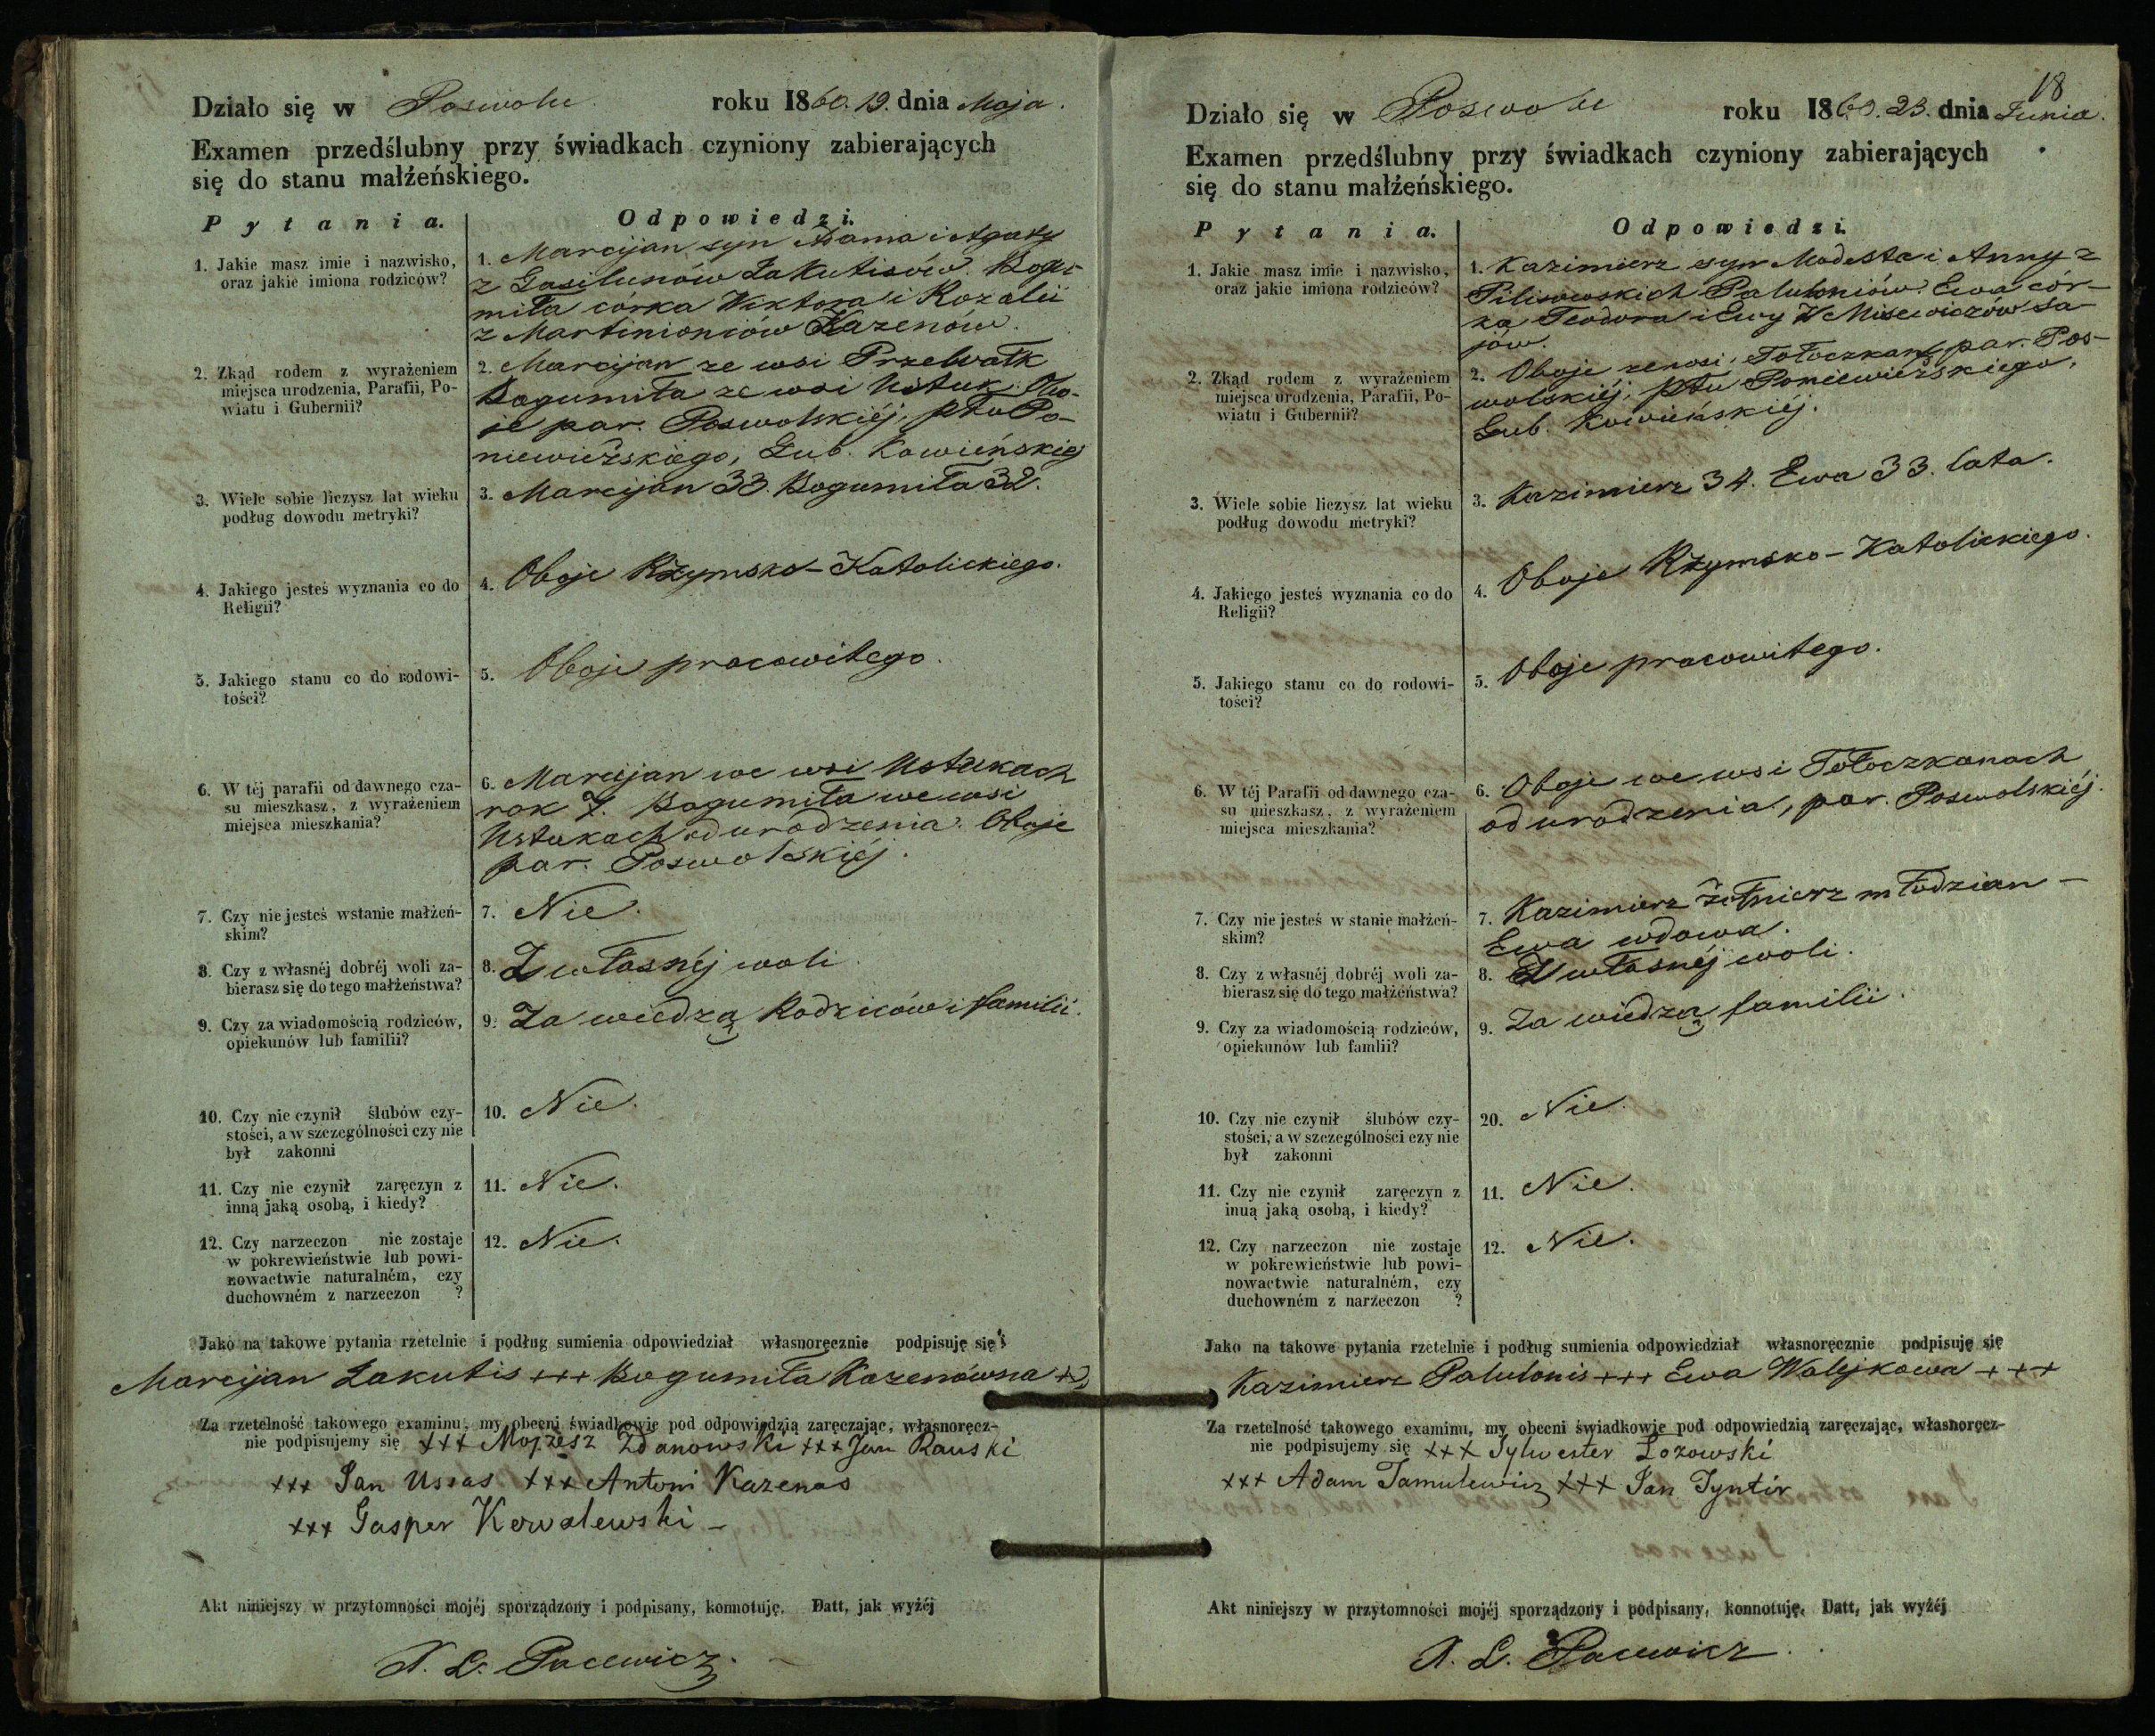 Działo się w Poswolu roku 1860. 19. dnia Maja.
Examen przedślubny przy świadkach czyniony zabierających
się do stanu małżeńskiego.
Pytania. Odpowiedzi.
1. Jakie masz imie i nazwisko,
oraz jakie imiona rodziców?
1. Marcijan syn Adama i Agaty
z Gasilunów Łakutisów. Bogu-
miła córka Wiktora i Rozalii
z Martinioniów Kazenów.
2. Zkąd rodem z wyrażeniem
miejsca urodzenia, Parafii, Po-
wiatu i Gubernii?
2. Marcijan ze wsi Przewałk
Bogumiła ze wsi Ustuk. Obo-
je par. Poswolskiéj, Pttu Po-
niewieżskiego, Gub. Kowieńskiej
3. Wiele sobie liczysz lat wieku
podług dowodu metryki?
3. Marcijan 33. Bogumiła 32.
4. Jakiego jesteś wyznania co do
Religii?
4. Oboje Rzymsko-Katolickiego.
5. Jakiego stanu co do rodowi-
tości?
5. Oboje pracowitego.
6. W téj parafii od dawnego cza-
su mieszkasz, z wyrażeniem
miejsca mieszkania?
6. Marcijan we wsi Ustukach
rok 7. Bogumiła we wsi
Ustukach od urodzenia. Oboje
par. Poswolskiéj.
7. Czy nie jesteś wstanie małżeń-
skim?
7. Nie.
8. Czy z własnéj dobréj woli za-
bierasz się do tego małżeństwa?
8. Z własnéj woli.
9. Czy za wiadomością rodziców,
opiekunów lub familii?
9. Za wiedzą Rodziców i familii.
10. Czy nie czynił ślubów czy-
stości, a w szczególności czy nie
był zakonni
10. Nie.
11. Czy nie czynił zaręczyn z
inną jaką osobą, i kiedy?
11. Nie.
12. Czy narzeczon nie zostaje
w pokrewieństwie lub powi-
nowactwie naturalném, czy
duchowném z narzeczon ?
12. Nie.
Jako na takowe pytania rzetelnie i podług sumienia odpowiedział własnoręcznie podpisuję się
Marcijan Łakutis +++ Bogumiła Kazenówna
Za rzetelność takowego examinu, my obecni świadkowie pod odpowiedzią zaręczając, własnoręcz-
nie podpisujemy się +++ Mojżesz Zdanowski +++ Jan Rauski
+++ Jan Ussas +++ Antoni Kazenas
+++ Gasper Kowalewski –
Akt niniejszy w przytomności mojéj sporządzony i podpisany, konnotuję, Datt, jak wyżéj
X. L. Pacewicz.
18
Działo się w Poswolu roku 1860. 23. dnia Junia.
Examen przedślubny przy świadkach czyniony zabierających
się do stanu małżeńskiego.
Pytania. Odpowiedzi.
1. Jakie masz imie i nazwisko,
oraz jakie imiona rodziców?
1. Kazimierz syn Modesta i Anny z
Pilisowskich Paluloniów. Ewa cór-
ka Teodora i Ewy z Misewiczów Sa-
jów.
2. Zkąd rodem z wyrażeniem
miejsca urodzenia, Parafii, Po-
wiatu i Gubernii?
2. Oboje ze wsi Tołoczkan, par. Pos-
wolskiéj, Pttu Poniewieżskiego,
Gub. Kowieńskiéj.
3. Wiele sobie liczysz lat wieku
podług dowodu metryki?
3. Kazimierz 34. Ewa 33. lata.
4. Jakiego jesteś wyznania co do
Religii?
4. Oboje Rzymsko-Katolickiego.
5. Jakiego stanu co do rodowi-
tości?
5. Oboje pracowitego.
6. W téj Parafii od dawnego cza-
su mieszkasz, z wyrażeniem
miejsca mieszkania?
6. Oboje we wsi Tołoczkanach
od urodzenia, par. Poswolskiéj.
7. Czy nie jesteś w stanie małżeń-
skim?
7. Kazimierz żołnierz młodzian –
Ewa wdowa.
8. Czy z własnéj dobréj woli za-
bierasz się do tego małżeństwa?
8. Z własnéj woli.
9. Czy za wiadomością rodziców,
opiekunów lub famlii?
9. Za wiedzą familii.
10. Czy nie czynił ślubów czy-
stości, a w szczególności czy nie
był zakonni
20. Nie.
11. Czy nie czynił zaręczyn z
inuą jaką osobą, i kiedy?
11. Nie.
12. Czy narzeczon nie zostaje
w pokrewieństwie lub powi-
nowactwie naturalném, czy
duchowném z narzeczon ?
12. Nie.
Jako na takowe pytania rzetelnie i podług sumienia odpowiedział własnoręcznie podpisuję się
Kazimierz Palulonis +++ Ewa Walejkowa +++
Za rzetelność takowego examinu, my obecni świadkowie pod odpowiedzią zaręczając, własnoręcz-
nie podpisujemy się +++ Sylwester Łozowski
+++ Adam Tamulewicz +++ Jan Tyntir
Akt niniejszy w przytomności mojéj sporządzony i podpisany, konnotuję, Datt, jak wyżéj
X. L. Pacewicz.